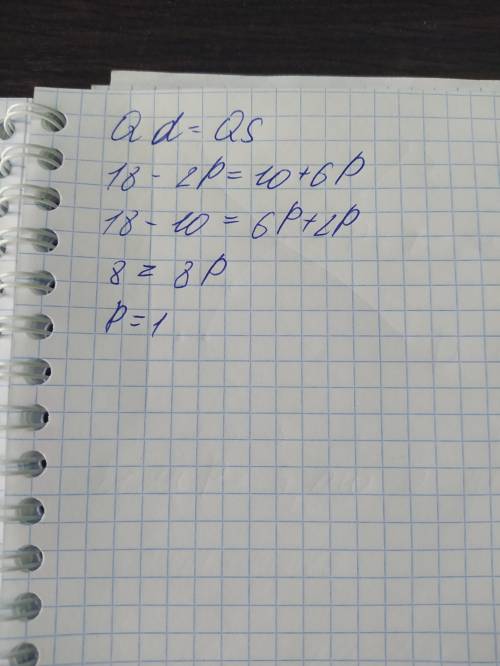 Qd = QS
18 - 2P = 10 + 6P
18 - 10 = 6P + 2P
8 = 8P
P = 1